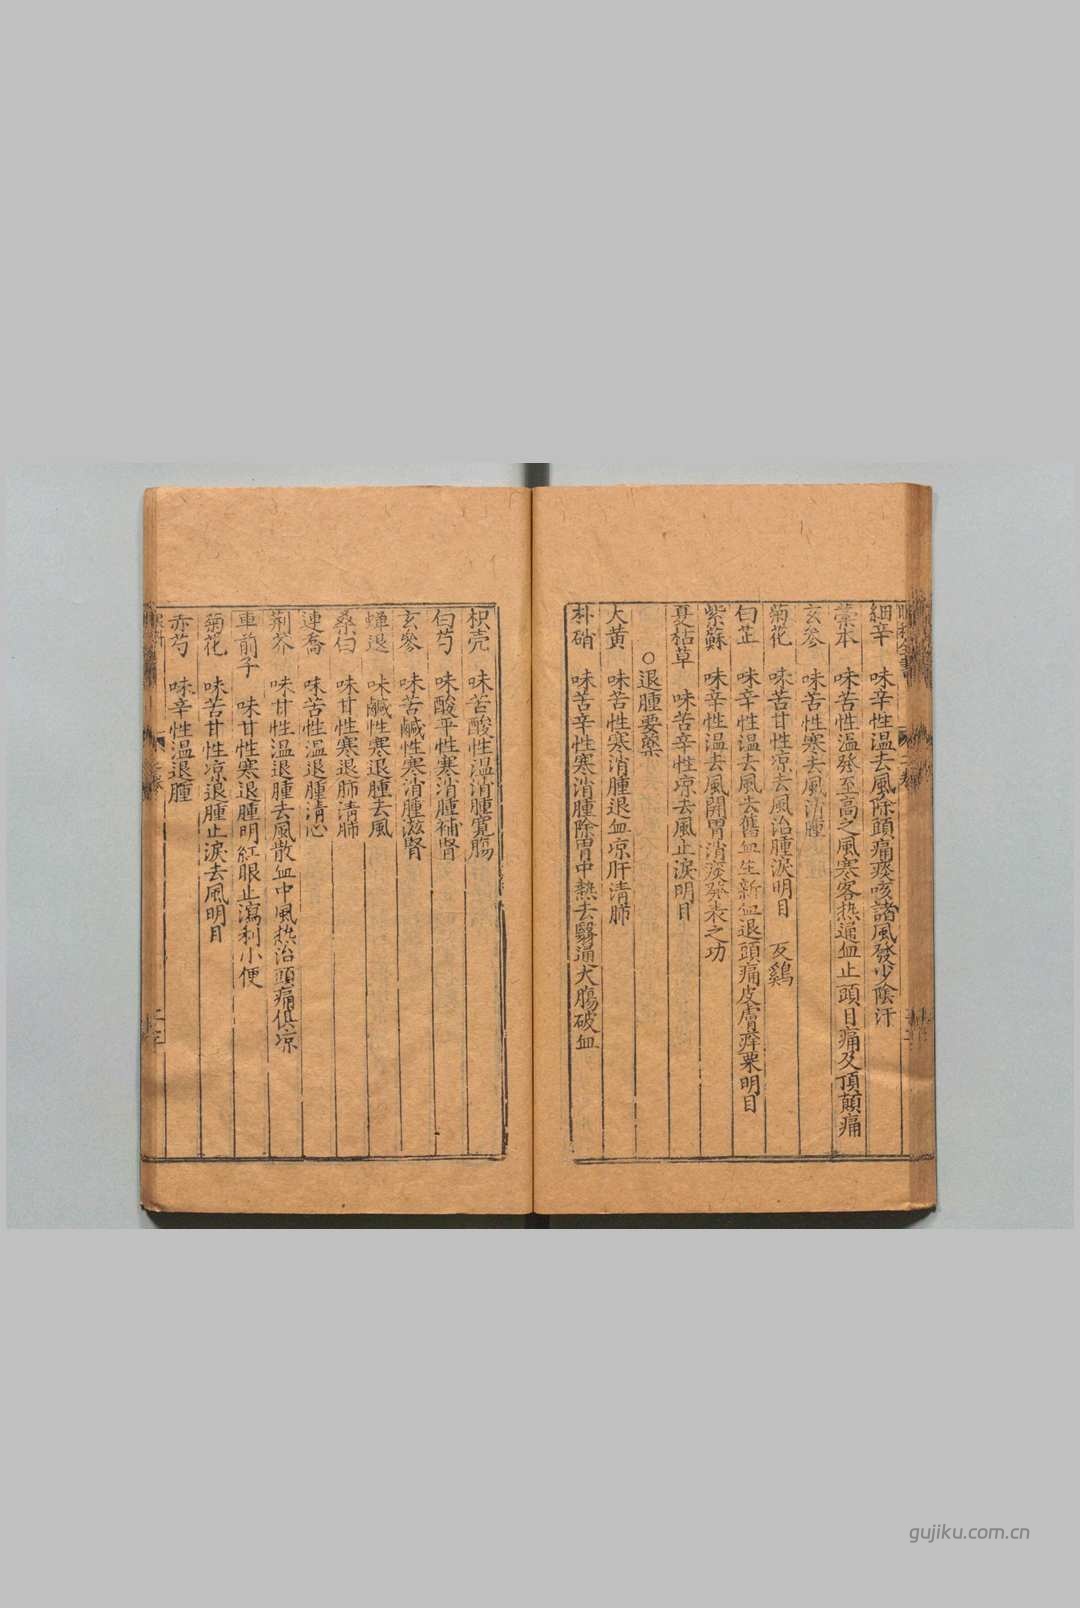 細辛　味辛性温去風除頭痛痰咳諸風發少陰汗
藁本　味苦性温發至高之風寒客热通血止頭目痛及頂顛痛
玄参　味苦性寒去風消腫
菊花　味苦甘性凉去風治腫淚明目　反鷄
白芷　味辛性温去風去舊血生新血退頭痛皮膚痒栗明目
紫蘇　味辛性温去風開胃消痰發表之功
夏枯草　味苦辛性凉去風止淚明目
○退腫要藥
大黄　味苦性寒消腫退血凉肝清肺
朴硝　味苦辛性寒消腫除胃中熱去翳通大腸破血
枳壳　味苦酸性温消腫寛腸
白芍　味酸平性寒消腫補腎
玄參　味苦鹹性寒消腫滋腎
蟬退　味鹹性寒退腫去風
桑白　味甘性寒退肺清肺
連喬　味苦性温退腫清心
荆芥　味甘性温退腫去風散血中風热治頭痛俱凉
車前子　味甘性寒退腫明紅眼止瀉利小便
菊花　味苦甘性凉退腫止淚去風明目
赤芍　味辛性温退腫
gujiku.com.cn